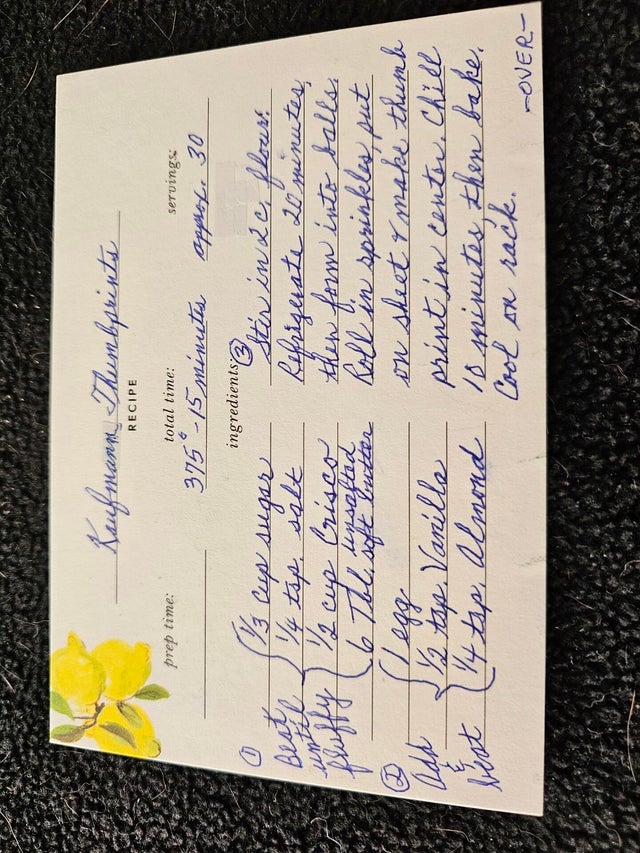 Kaufmann Thumbprints
RECIPE
prep time:
total time:
servings:
375° - 15 minutes
approx. 30
ingredients:
①
Beat
until
fluffy
1/3 cup sugar
1/4 tsp. salt
1/2 cup Crisco
6 Tbl. unsalted
soft butter
②
Add
&
beat
1 egg
1/2 tsp. Vanilla
1/4 tsp. Almond
③
Stir in 2 c. flour.
Refrigerate 20 minutes,
then form into balls.
Roll in sprinkles, put
on sheet & make thumb
print in center. Chill
10 minutes, then bake.
Cool on rack.
-OVER-